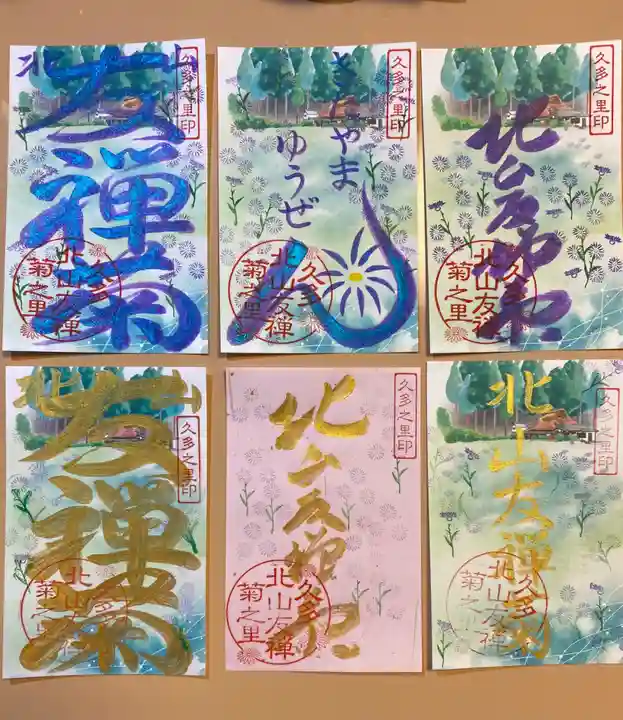 北山
友禅菊
久多之里印
久多
北山友禅
菊之里
きたやま
ゆうぜ
ん
久多之里印
久多
北山友禅
菊之里
北山友禅菊
久多之里印
久多
北山友禅
菊之里
北山
友禅菊
久多之里印
久多
北山友禅
菊之里
北山友禅菊
久多之里印
久多
北山友禅
菊之里
北山友禅菊
久多之里印
久多
北山友禅
菊之里